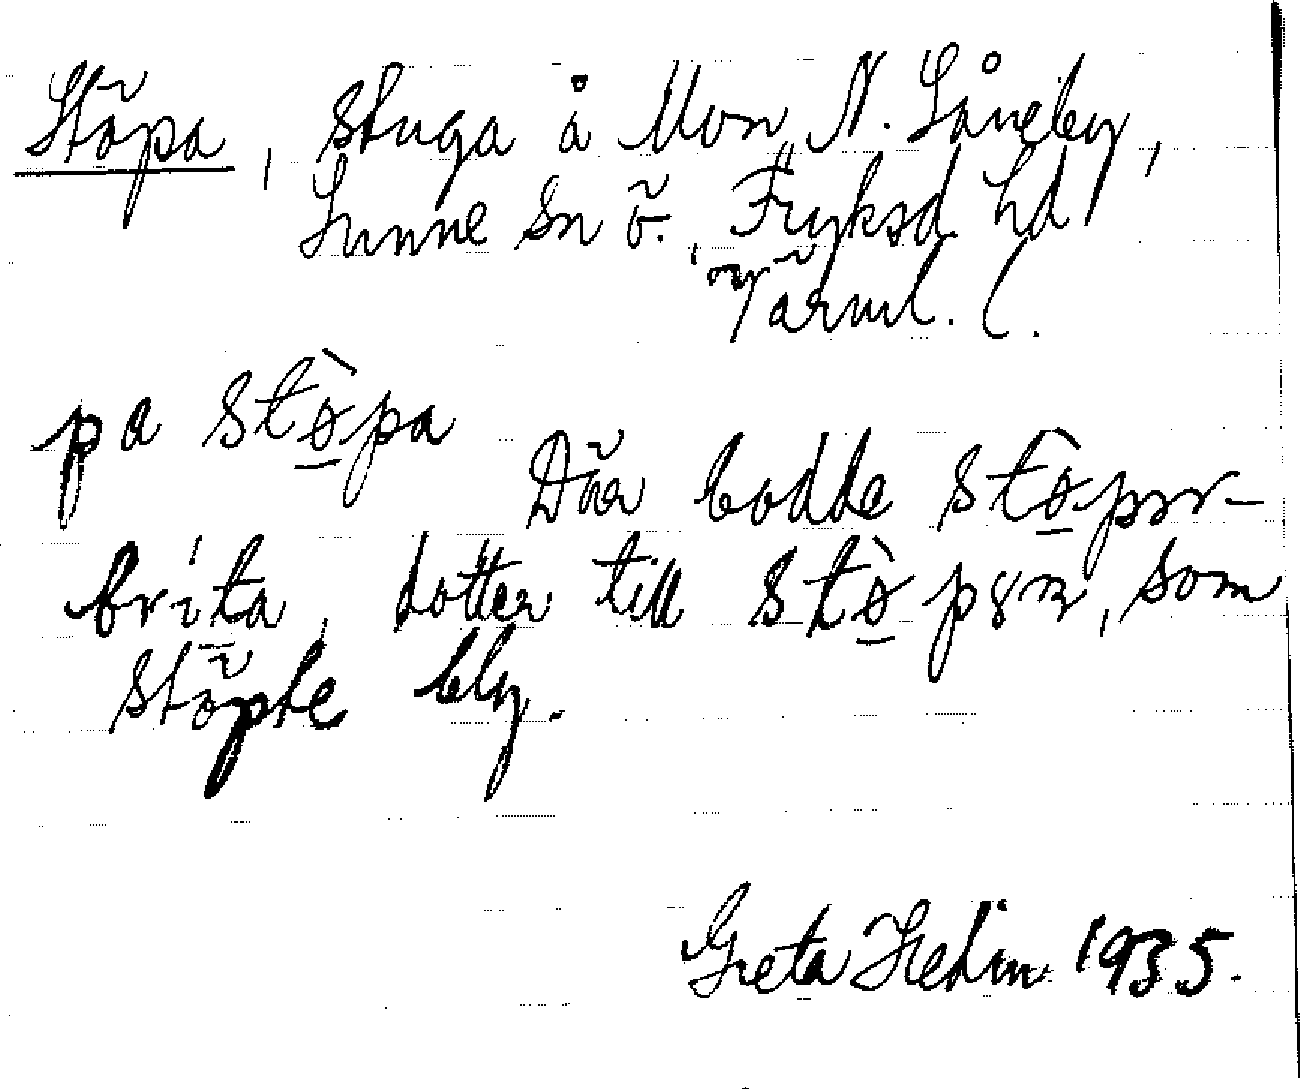 Stöpa, stuga å Mon, N. Låneby,
Sunne sn ö., Fryksd. hd,
Värml. l.
pa stø̀pa
Där bodde stø̀pər-
brita, dotter till stø̀pən, som
stöpte bly.
Greta Hedin 1935.